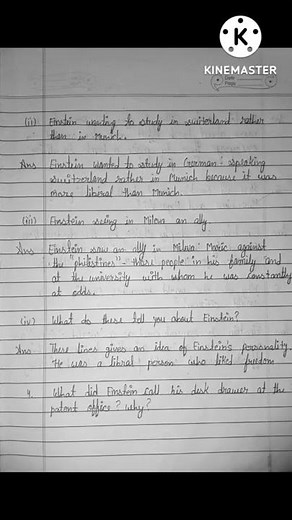 KINEMASTER
Date
Page
(ii) Einstein wanting to study in switzerland rather
than in Munich.
Ans Einstein wanted to study in German-speaking
switzerland rather in Munich because it was
more liberal than Munich.
(iii) Einstein seeing in Mileva an ally
Ans Einstein saw an ally in Mileva Maric against
the "philistines"- those people in his family and
at the university with whom he was constantly
at odds.
(iv) What do these tell you about Einstein?
Ans These lines gives an idea of Einstein's personality.
He was a libral person who liked freedom
4. What did Einstein call his desk drawer at the
patent office? why?